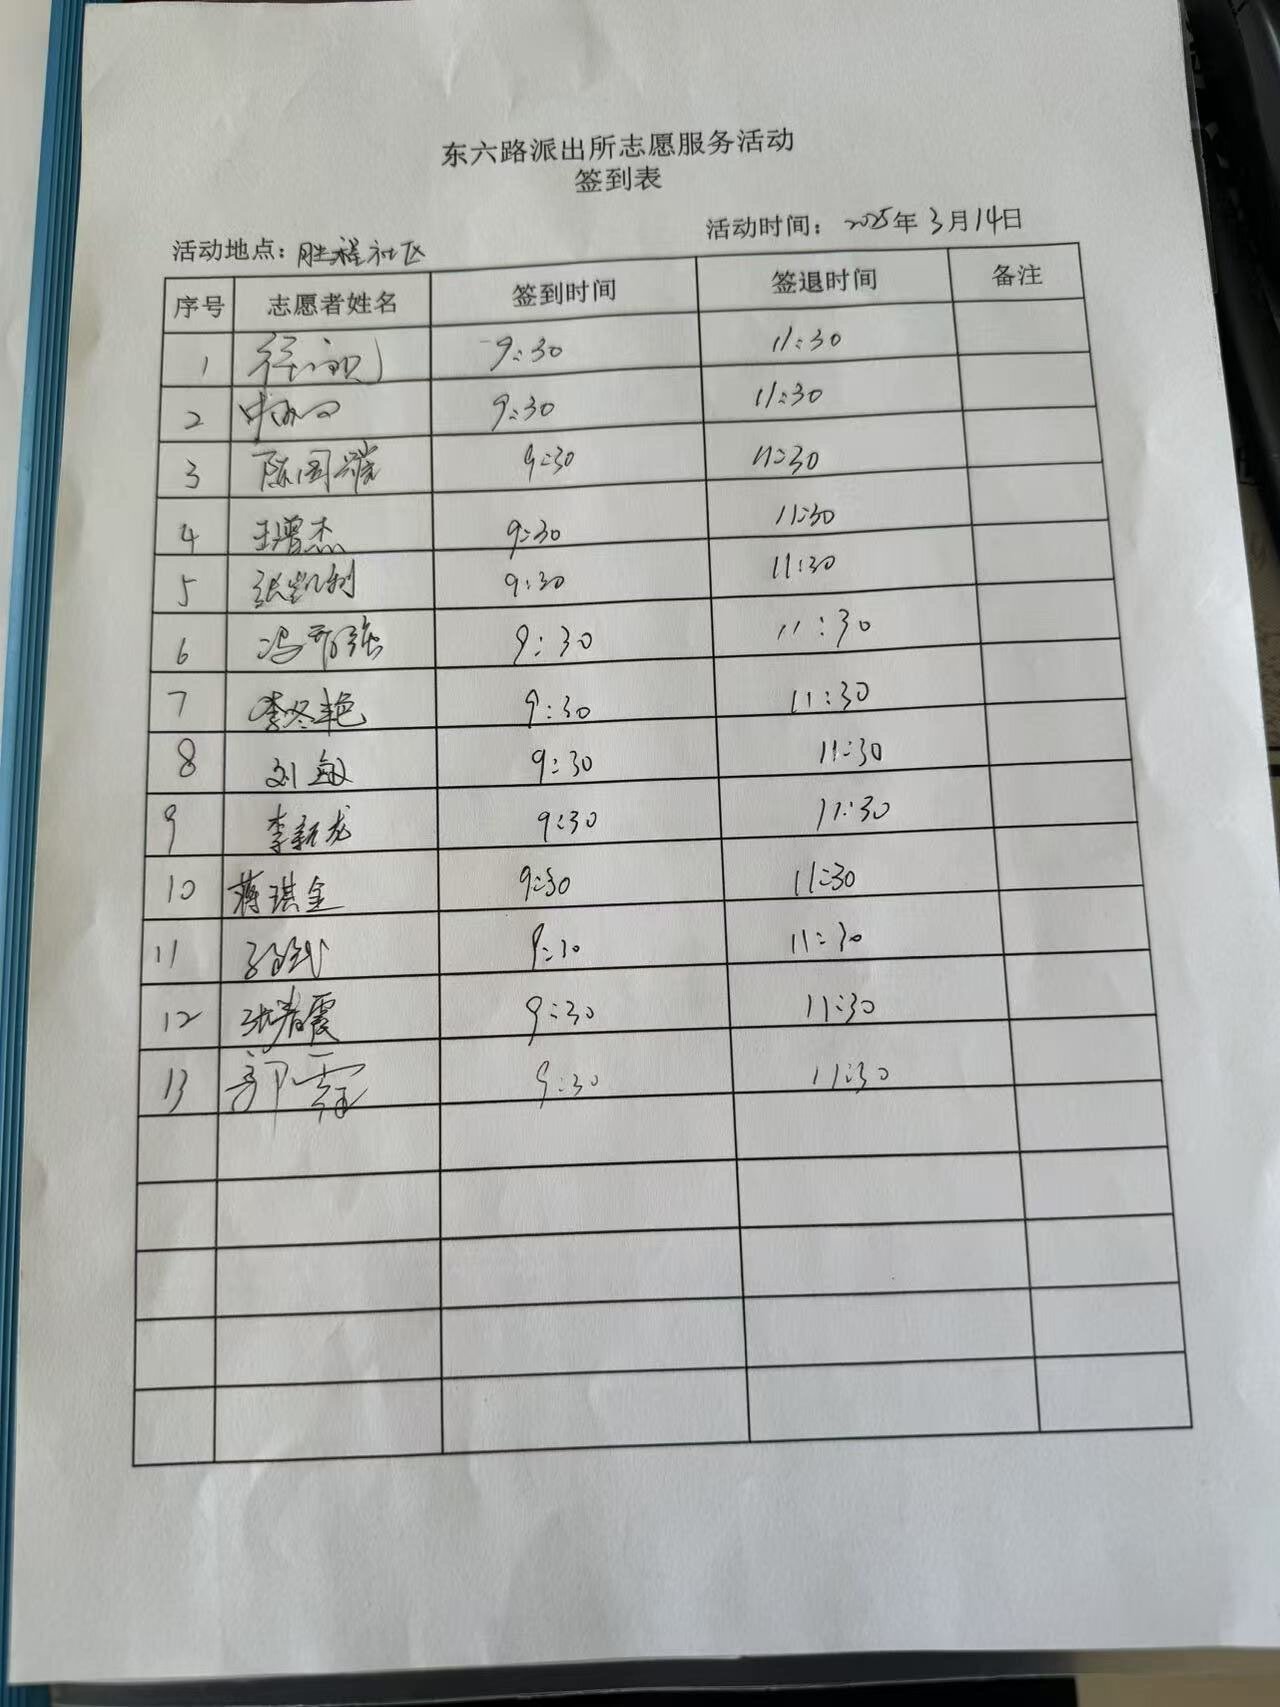 东六路派出所志愿服务活动
签到表
活动地点：胜程社区 活动时间：2025年3月14日
序号 志愿者姓名 签到时间 签退时间 备注
1 9:30 11:30
2 9:30 11:30
3 陈国 9:30 11:30
4 王增杰 9:30 11:30
5 张凯利 9:30 11:30
6 冯 强 9:30 11:30
7 李冬艳 9:30 11:30
8 刘敏 9:30 11:30
9 李新龙 9:30 11:30
10 蒋琪金 9:30 11:30
11 9:30 11:30
12 张春霞 9:30 11:30
13 郭霞 9:30 11:30